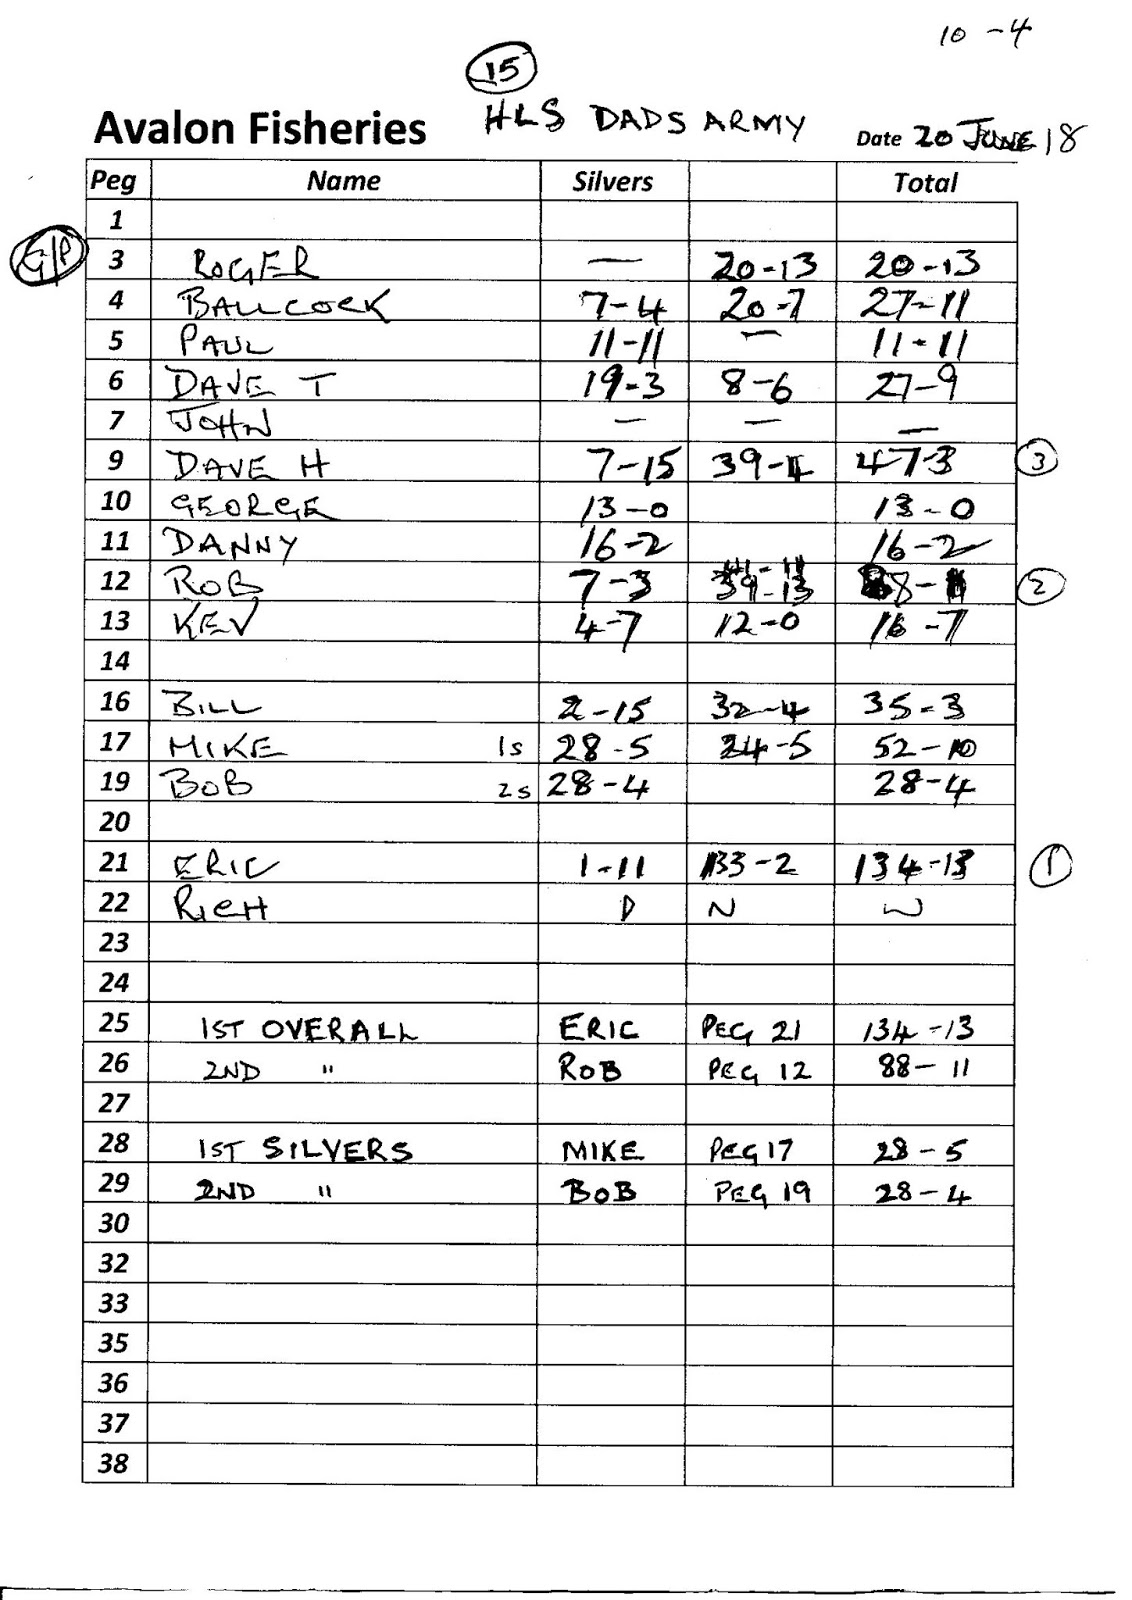 10 - 4
15
Avalon Fisheries HLS DADS ARMY Date 20 JUNE 18
Peg Name Silvers Total
1
G/P 3 ROGER — 20-13 20-13
4 BALLCOCK 7-4 20-7 27-11
5 PAUL 11-11 — 11-11
6 DAVE T 19-3 8-6 27-9
7 JOHN — — —
9 DAVE H 7-15 39-4 47-3 3
10 GEORGE 13-0 13-0
11 DANNY 16-2 16-2
12 ROB 7-3 2
13 KEV 4-7 12-0 16-7
14
16 BILL 2-15 32-4 35-3
17 MIKE 1s 28-5 24-5 52-10
19 BOB 2s 28-4 28-4
20
21 ERIC 1-11 133-2 134-13 1
22 RICH D N W
23
24
25 1ST OVERALL ERIC PEG 21 134-13
26 2ND " ROB PEG 12 88-11
27
28 1ST SILVERS MIKE PEG 17 28-5
29 2ND " BOB PEG 19 28-4
30
32
33
35
36
37
38